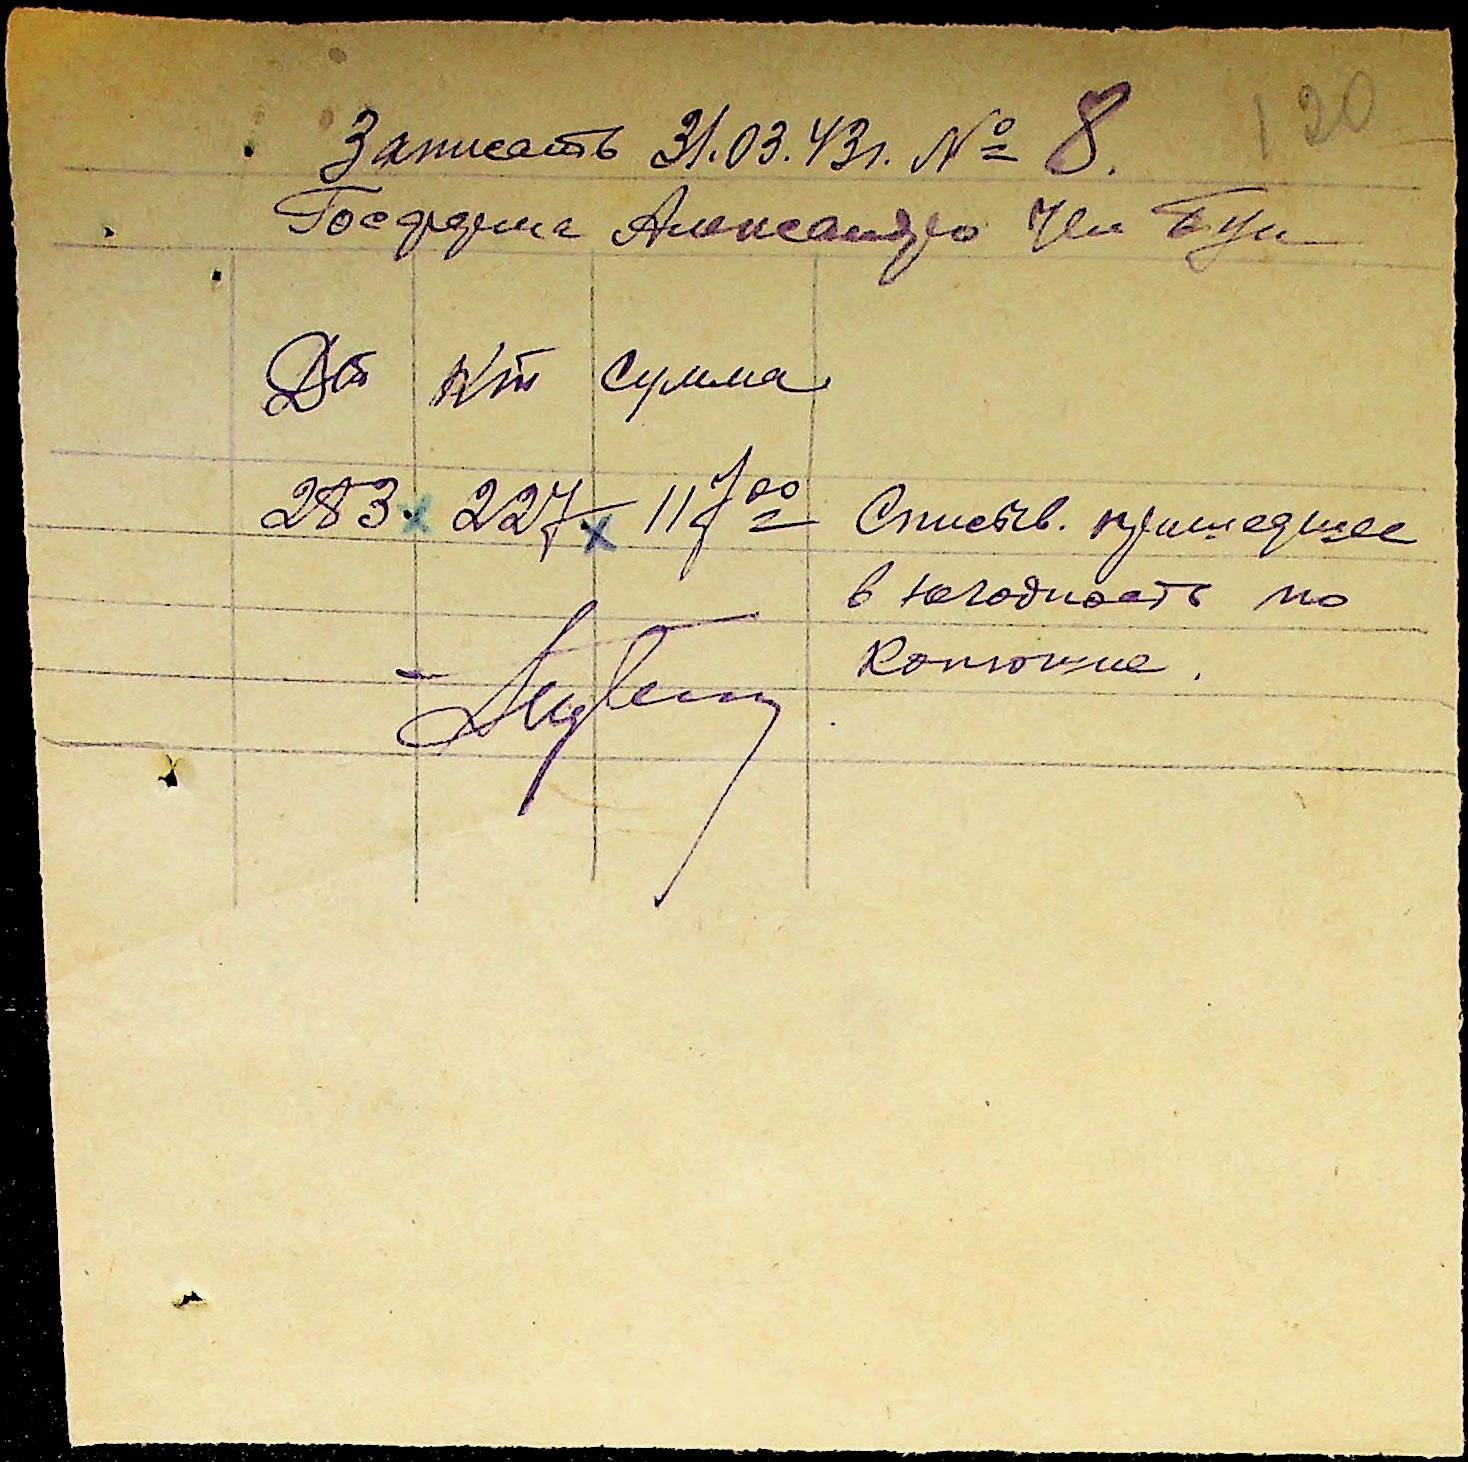 120
Записать 31.03.43г. № 8.
Госферма Александро
Дт Кт Сумма
283 × 227 × 117 00 Списыв. пришедшее
в негодность по
Конюшне.